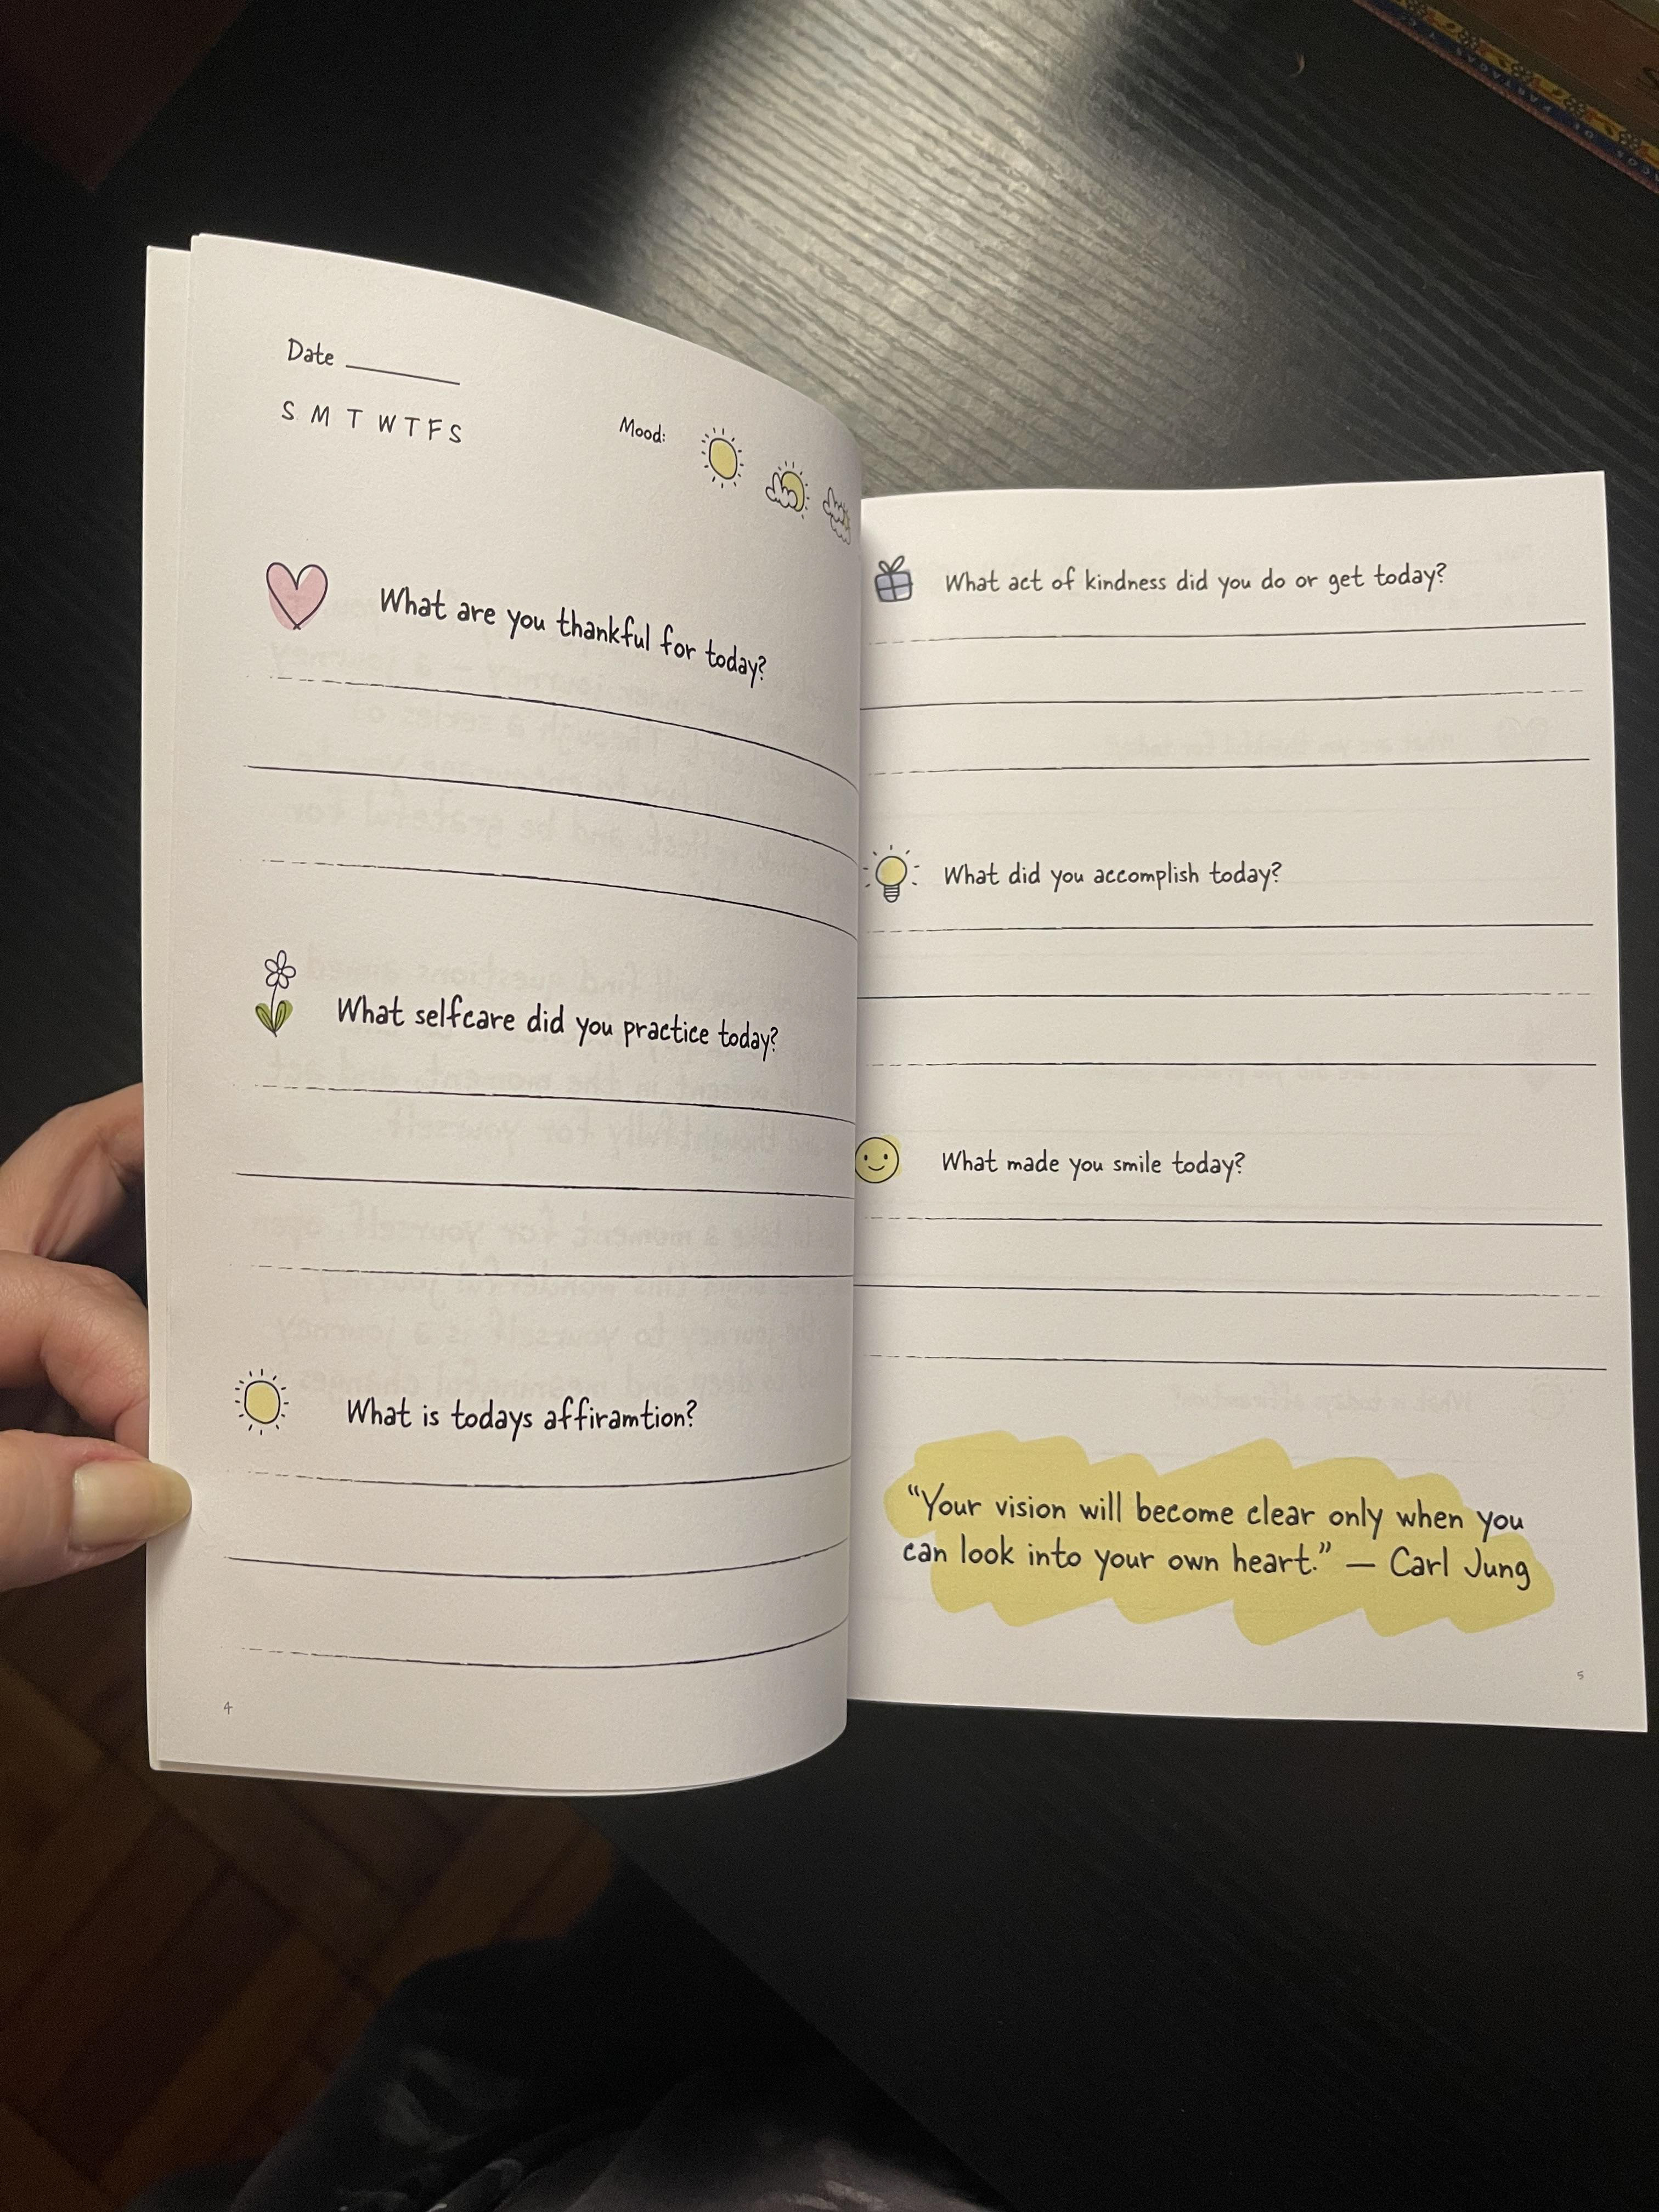 Date
S M T W T F S
Mood:
What are you thankful for today?
What selfcare did you practice today?
What is todays affiramtion?
4
What act of kindness did you do or get today?
What did you accomplish today?
What made you smile today?
“Your vision will become clear only when you
can look into your own heart.” — Carl Jung
5